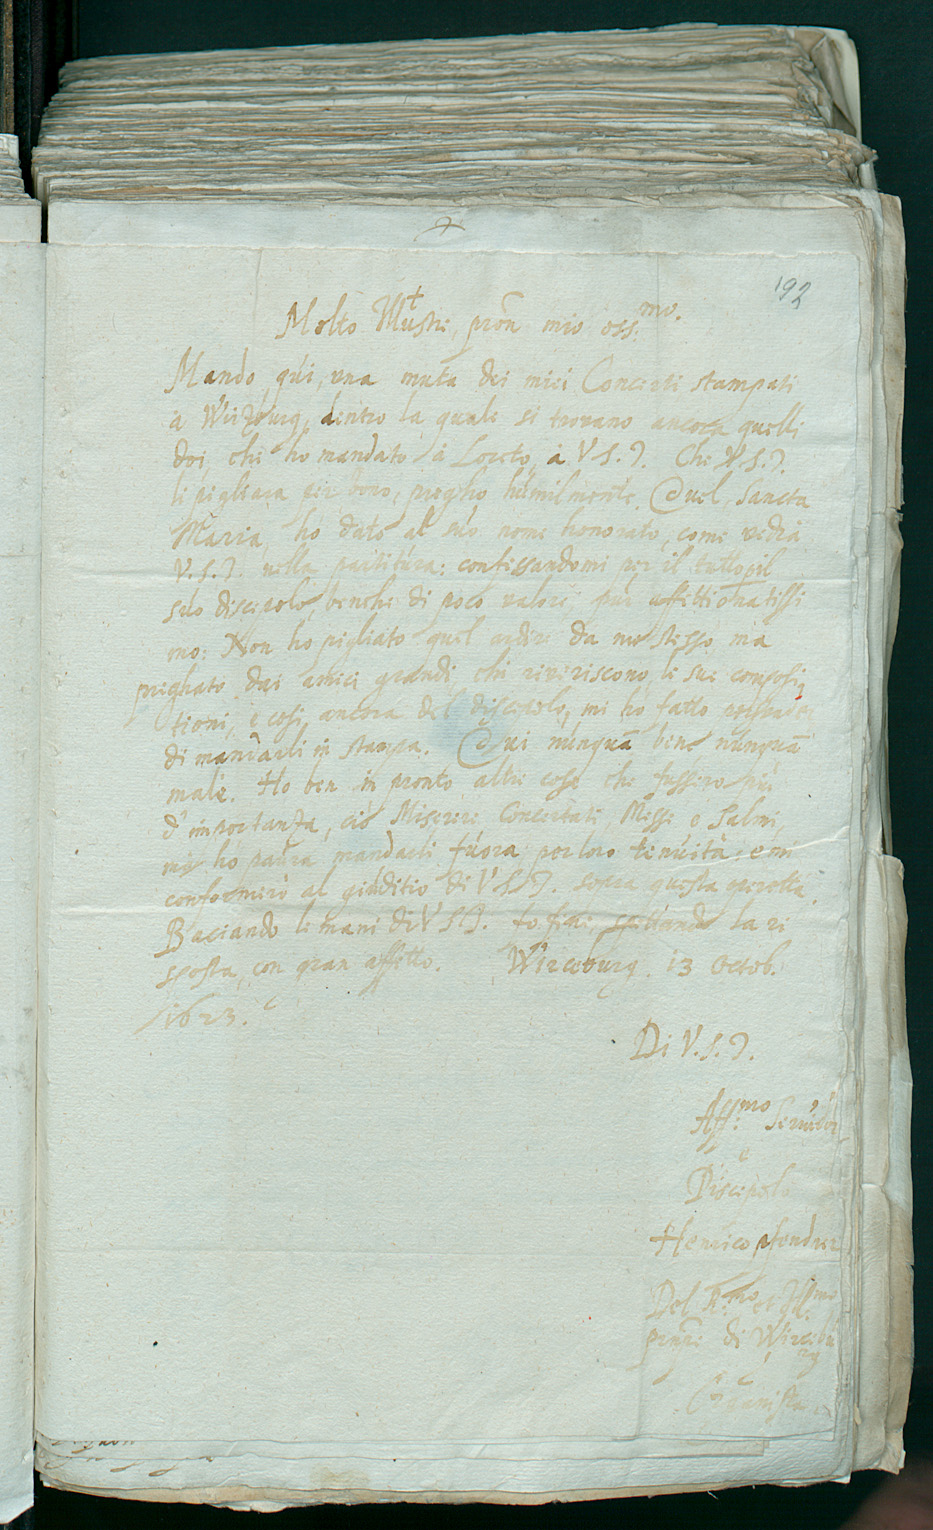 192
Molto Illustre, pron mio oss.mo.
Mando qui, una muta dei miei Concerti stampati
à Wirzburg, dentro la quale si trovano ancora quelli
doi, che ho mandato à Loreto à V.S.I. Che V.S.I.
li pigliara per bono, pregho humilmente. Quel, Sancta
Maria, ho dato al suo nome honorato, come vedra
V.S.I. nella partitura: confessandomi per il tutto il
suo discepolo, benche di poco valore, pur affettionatissi
mo: Non ho pigliato quel ardire da me stesso, ma
preghato dai amici grandi, chi reveriscono le sue composi,
tioni, e cosi, ancora del discepolo, mi ho fatto
di mandarli in stampa. Qui nunquã bene nunquã
male. Ho ben in pronto altre cose che fussero più
d'importanza, cio Miserere Concertati, Messe e Salmi,
mi ho paura mandarli fuora, per loro tenuità, e mi
conformerò al giuditio di V.S.I. sopra questa operetta.
Baciando le mani di V.S.I. to fine, la ri
sposta, con gran affetto. Wirceburg. 13 Octob.
1623.
Di V.S.I.
Aff:mo Servidor
e
Discepolo
Henrico Pfendner
Del R.mo et Ill.mo
di Wircebu
rg
Organista